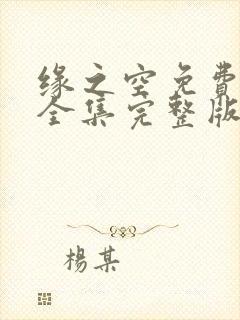 缘之空免費
全集完整版
楊某